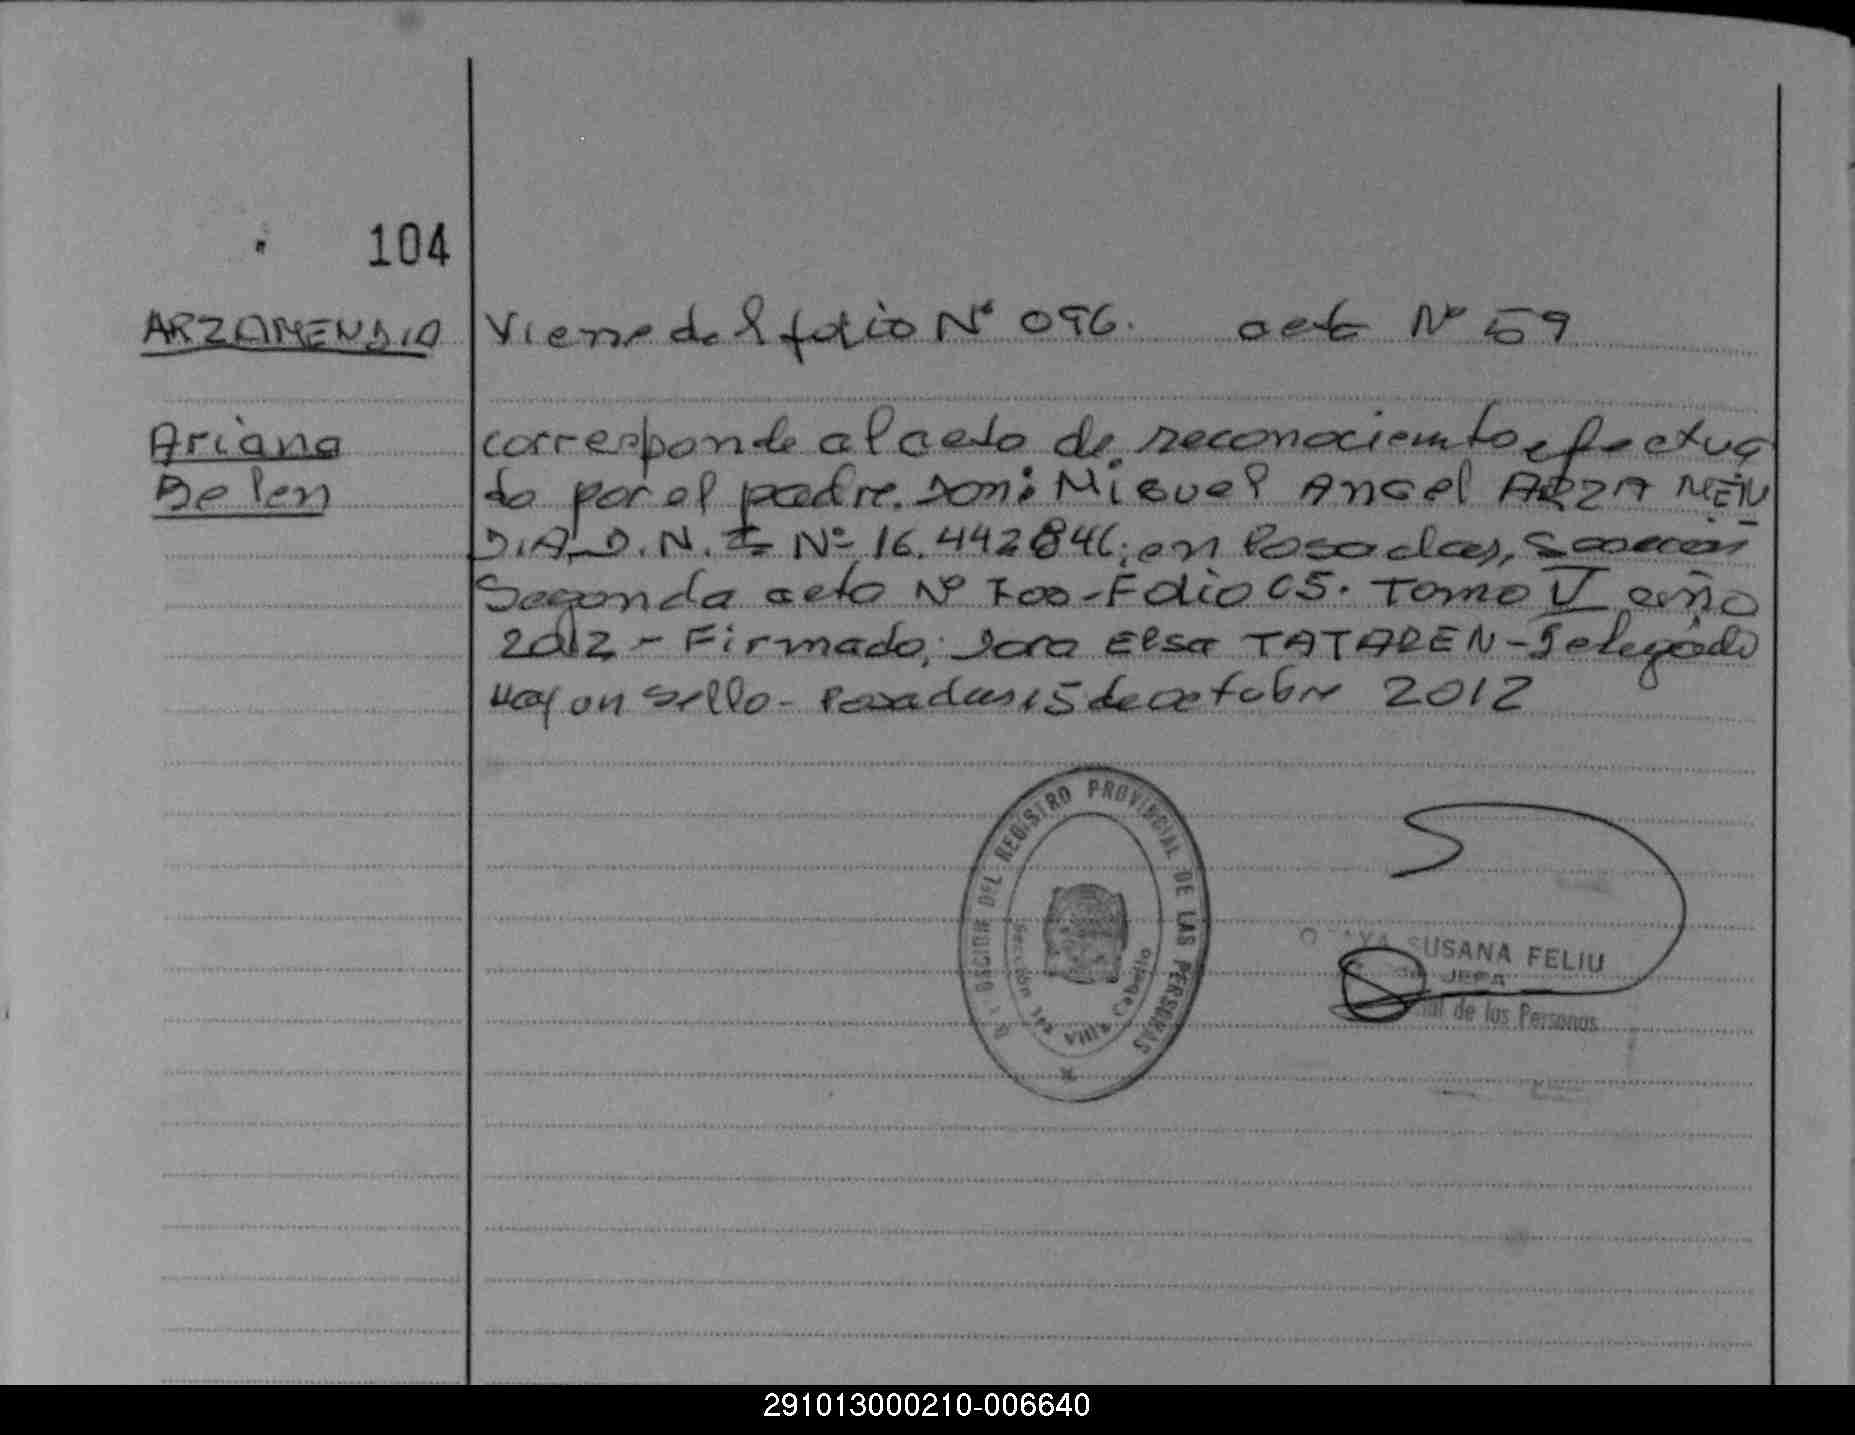 104
ARZAMENDIA
Viene del folio Nº 096. acta Nº 59
Ariana
Belen
corresponde al acto de reconociemto efectua
do por el padre. Don: Miguel Angel ARZA MEN
DIA D.N.I Nº 16.442846; en Posadas, Sección
Segunda acta Nº 700-Folio 05. Tomo V año
2012 - Firmado; Dora Elsa TATAREN - Delegado
Hay un sello - Posadas 15 de octubre 2012
DEL REGISTRO PROVINCIAL DE LAS PERSONAS
Sección 1ra Villa Cabello
SUSANA FELIU
JEFA
de las Personas
291013000210-006640